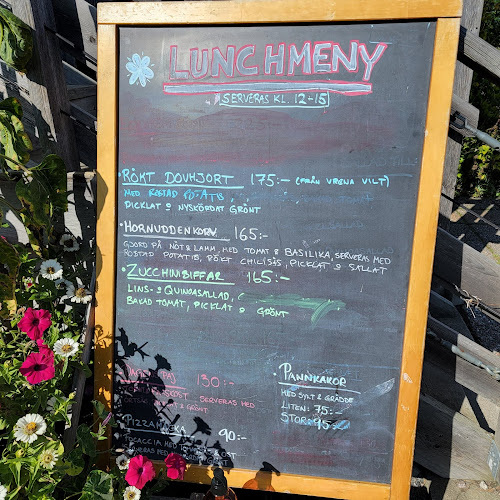 LUNCHMENY
SERVERAS KL. 12-15
RÖKT DOVHJORT 175:- (FRÅN VRENA VILT)
MED ROSTAD POTATIS,
PICKLAT & NYSKÖRDAT GRÖNT
HORNUDDENKORV 165:-
GJORD PÅ NÖT & LAMM, MED TOMAT & BASILIKA, SERVERAS MED
ROSTAD POTATIS, RÖKT CHILISÅS, PICKLAT & SALLAT
ZUCCHINIBIFFAR 165:-
LINS- & QUINOASALLAD,
BAKAD TOMAT, PICKLAT & GRÖNT
130:-
SERVERAS MED
& GRÖNT
PIZZA 90:-
MED
PANNKAKOR
MED SYLT & GRÄDDE
LITEN: 75:-
STOR: 95:-